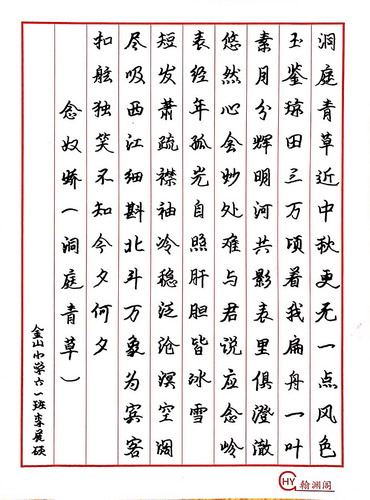 洞庭青草近中秋更无一点风色
玉鉴琼田三万顷着我扁舟一叶
素月分辉明河共影表里俱澄澈
悠然心会妙处难与君说应念岭
表经年孤光自照肝胆皆冰雪
短发萧疏襟袖冷稳泛沧溟空阔
尽吸西江细斟北斗万象为宾客
扣舷独笑不知今夕何夕
念奴娇(洞庭青草)
金山小学六一班李展硕
HY 翰洲阁